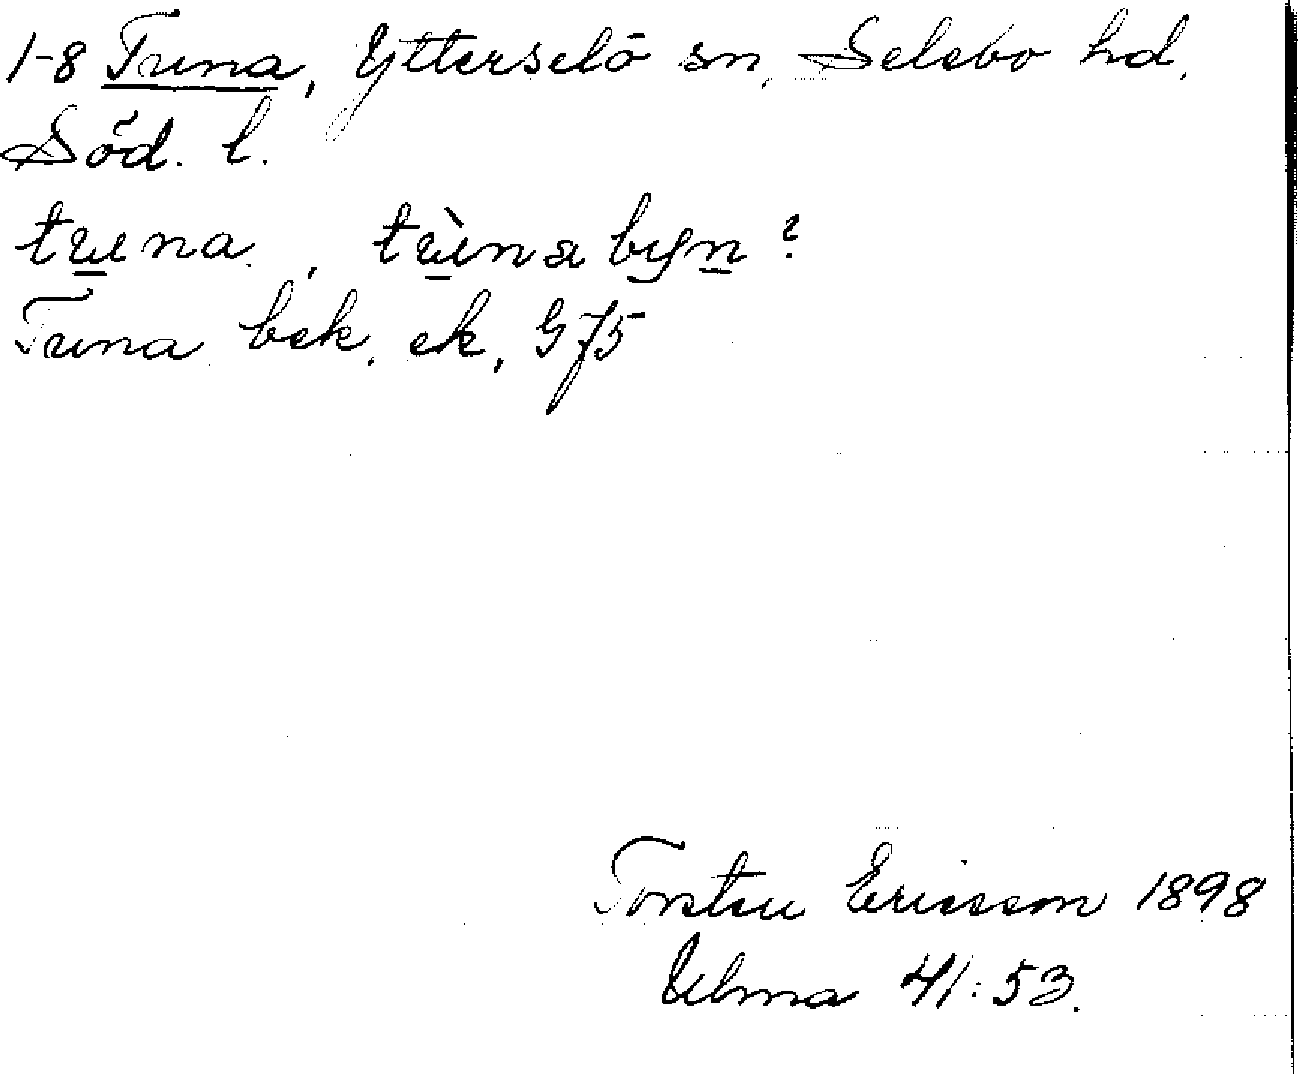 1-8 Tuna, Ytterselö sn, Selebo hd,
Söd. l.
tu̲na, tù̲nabyn̲ ?
Tuna bek. ek, G 75
Torsten Ericsson 1898
Ulma 41:53.